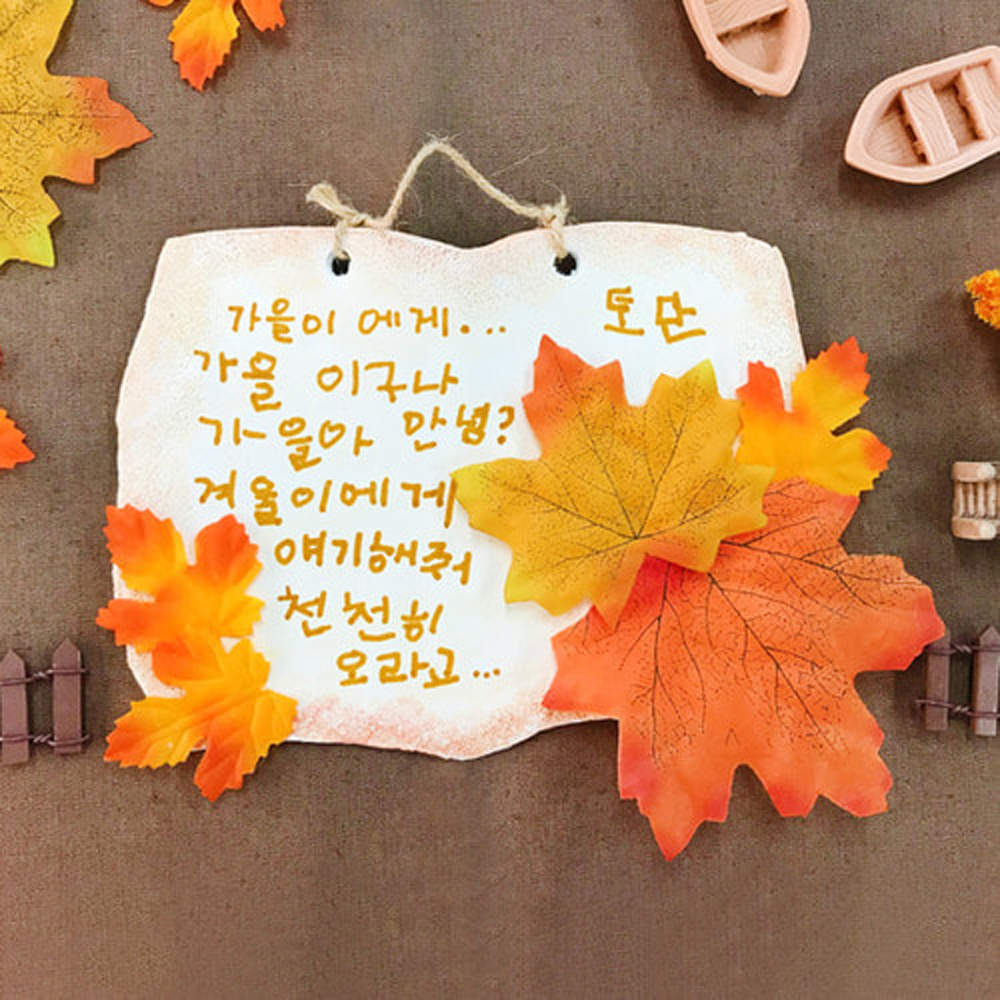 가을이 에게...
도단
가을 이구나
가을아 안녕?
겨울이에게
얘기해줘
천천히
오라고...